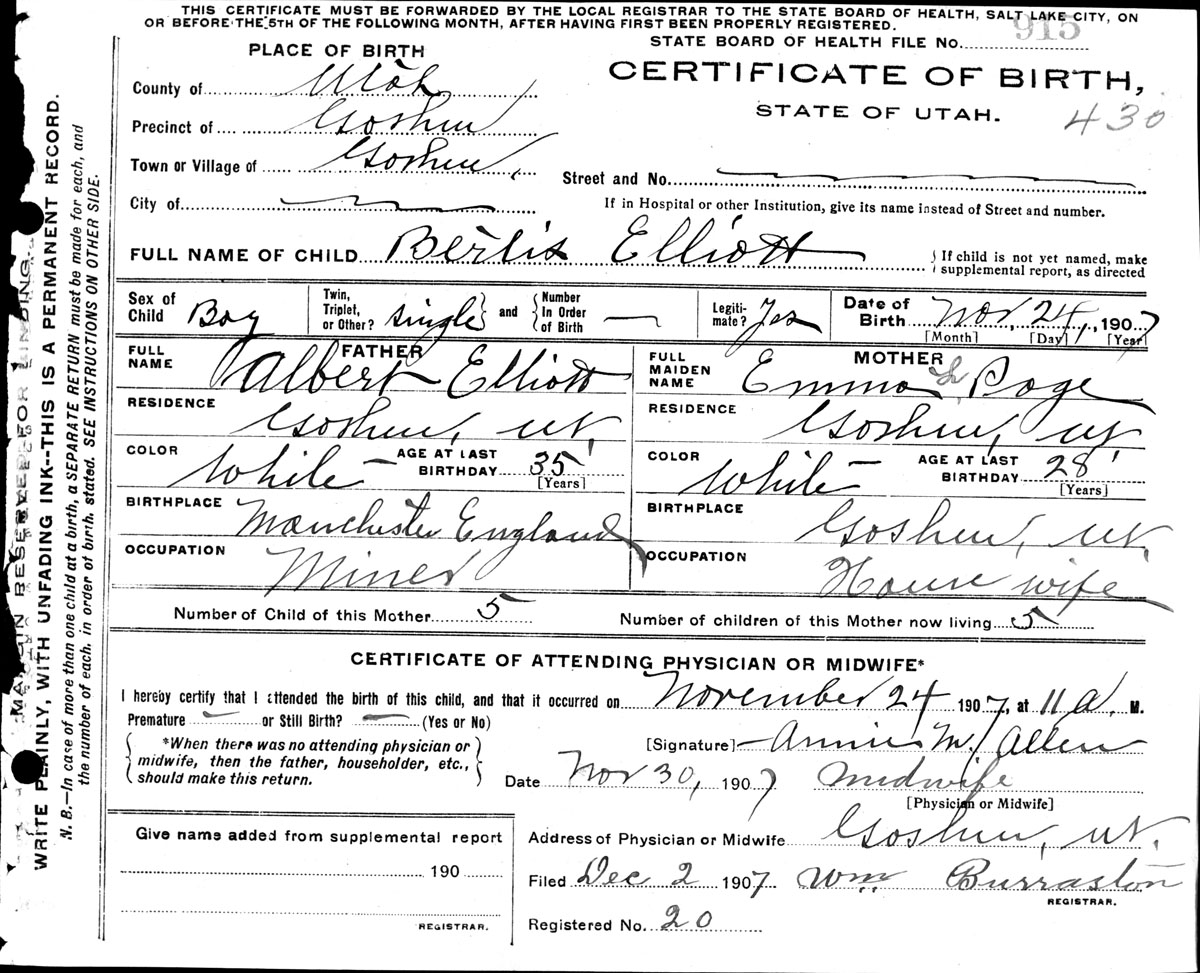 THIS CERTIFICATE MUST BE FORWARDED BY THE LOCAL REGISTRAR TO THE STATE BOARD OF HEALTH, SALT LAKE CITY, ON
OR BEFORE THE 5TH OF THE FOLLOWING MONTH, AFTER HAVING FIRST BEEN PROPERLY REGISTERED.
915
PLACE OF BIRTH
STATE BOARD OF HEALTH FILE No.
County of Utah
CERTIFICATE OF BIRTH,
STATE OF UTAH.
430
Precinct of Goshen
Town or Village of Goshen,
Street and No.
City of
If in Hospital or other Institution, give its name instead of Street and number.
FULL NAME OF CHILD Berlis Elliott
If child is not yet named, make
supplemental report, as directed
Sex of Child Boy
Twin, Triplet, or Other? single and Number In Order of Birth
Legiti-mate? Yes
Date of Birth Nov, 24, 1907
[Month] [Day] [Year]
FATHER
FULL NAME Albert Elliott
RESIDENCE Goshen, Ut,
COLOR White
AGE AT LAST BIRTHDAY 35
[Years]
BIRTHPLACE Manchester England
OCCUPATION Miner
MOTHER
FULL MAIDEN NAME Emma L Page
RESIDENCE Goshen, Ut
COLOR White
AGE AT LAST BIRTHDAY 28
[Years]
BIRTHPLACE Goshen, Ut,
OCCUPATION House wife
Number of Child of this Mother 5
Number of children of this Mother now living 5
CERTIFICATE OF ATTENDING PHYSICIAN OR MIDWIFE*
I hereby certify that I attended the birth of this child, and that it occurred on November 24 1907, at 11 a. M.
Premature or Still Birth? (Yes or No)
*When there was no attending physician or
midwife, then the father, householder, etc.,
should make this return.
[Signature] Annie M. Allen
Date Nov 30, 1907 Midwife
[Physician or Midwife]
Give name added from supplemental report
190
REGISTRAR.
Address of Physician or Midwife Goshen, Ut.
Filed Dec 2 1907 Wm Burraston
REGISTRAR.
Registered No. 20
MARGIN RESERVED FOR BINDING.
WRITE PLAINLY, WITH UNFADING INK--THIS IS A PERMANENT RECORD.
N. B.—In case of more than one child at a birth, a SEPARATE RETURN must be made for each, and
the number of each, in order of birth, stated. SEE INSTRUCTIONS ON OTHER SIDE.